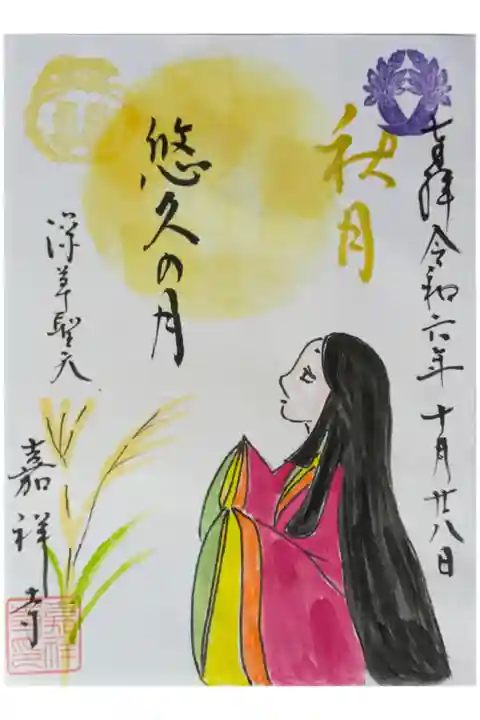 奉拝 令和六年 十月廿八日
秋月
悠久の月
深草聖天
嘉祥寺